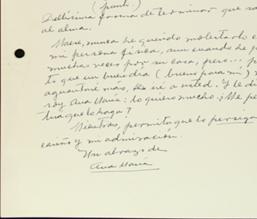 (punti)
Bellísima forma de terminar que
al alma.
Maese, nunca he querido molestarlo
mi persona física, aun cuando he
muchas veces por su casa, pero...
to que un buen día (bueno para mí)
aguantaré más, iré a usted. Y le di
soy Ana María: lo quiero mucho; Me
tina que lo haga?
Mientras, permita que lo persiga
cariño y mi admiración.
Un abrazo de
Ana María